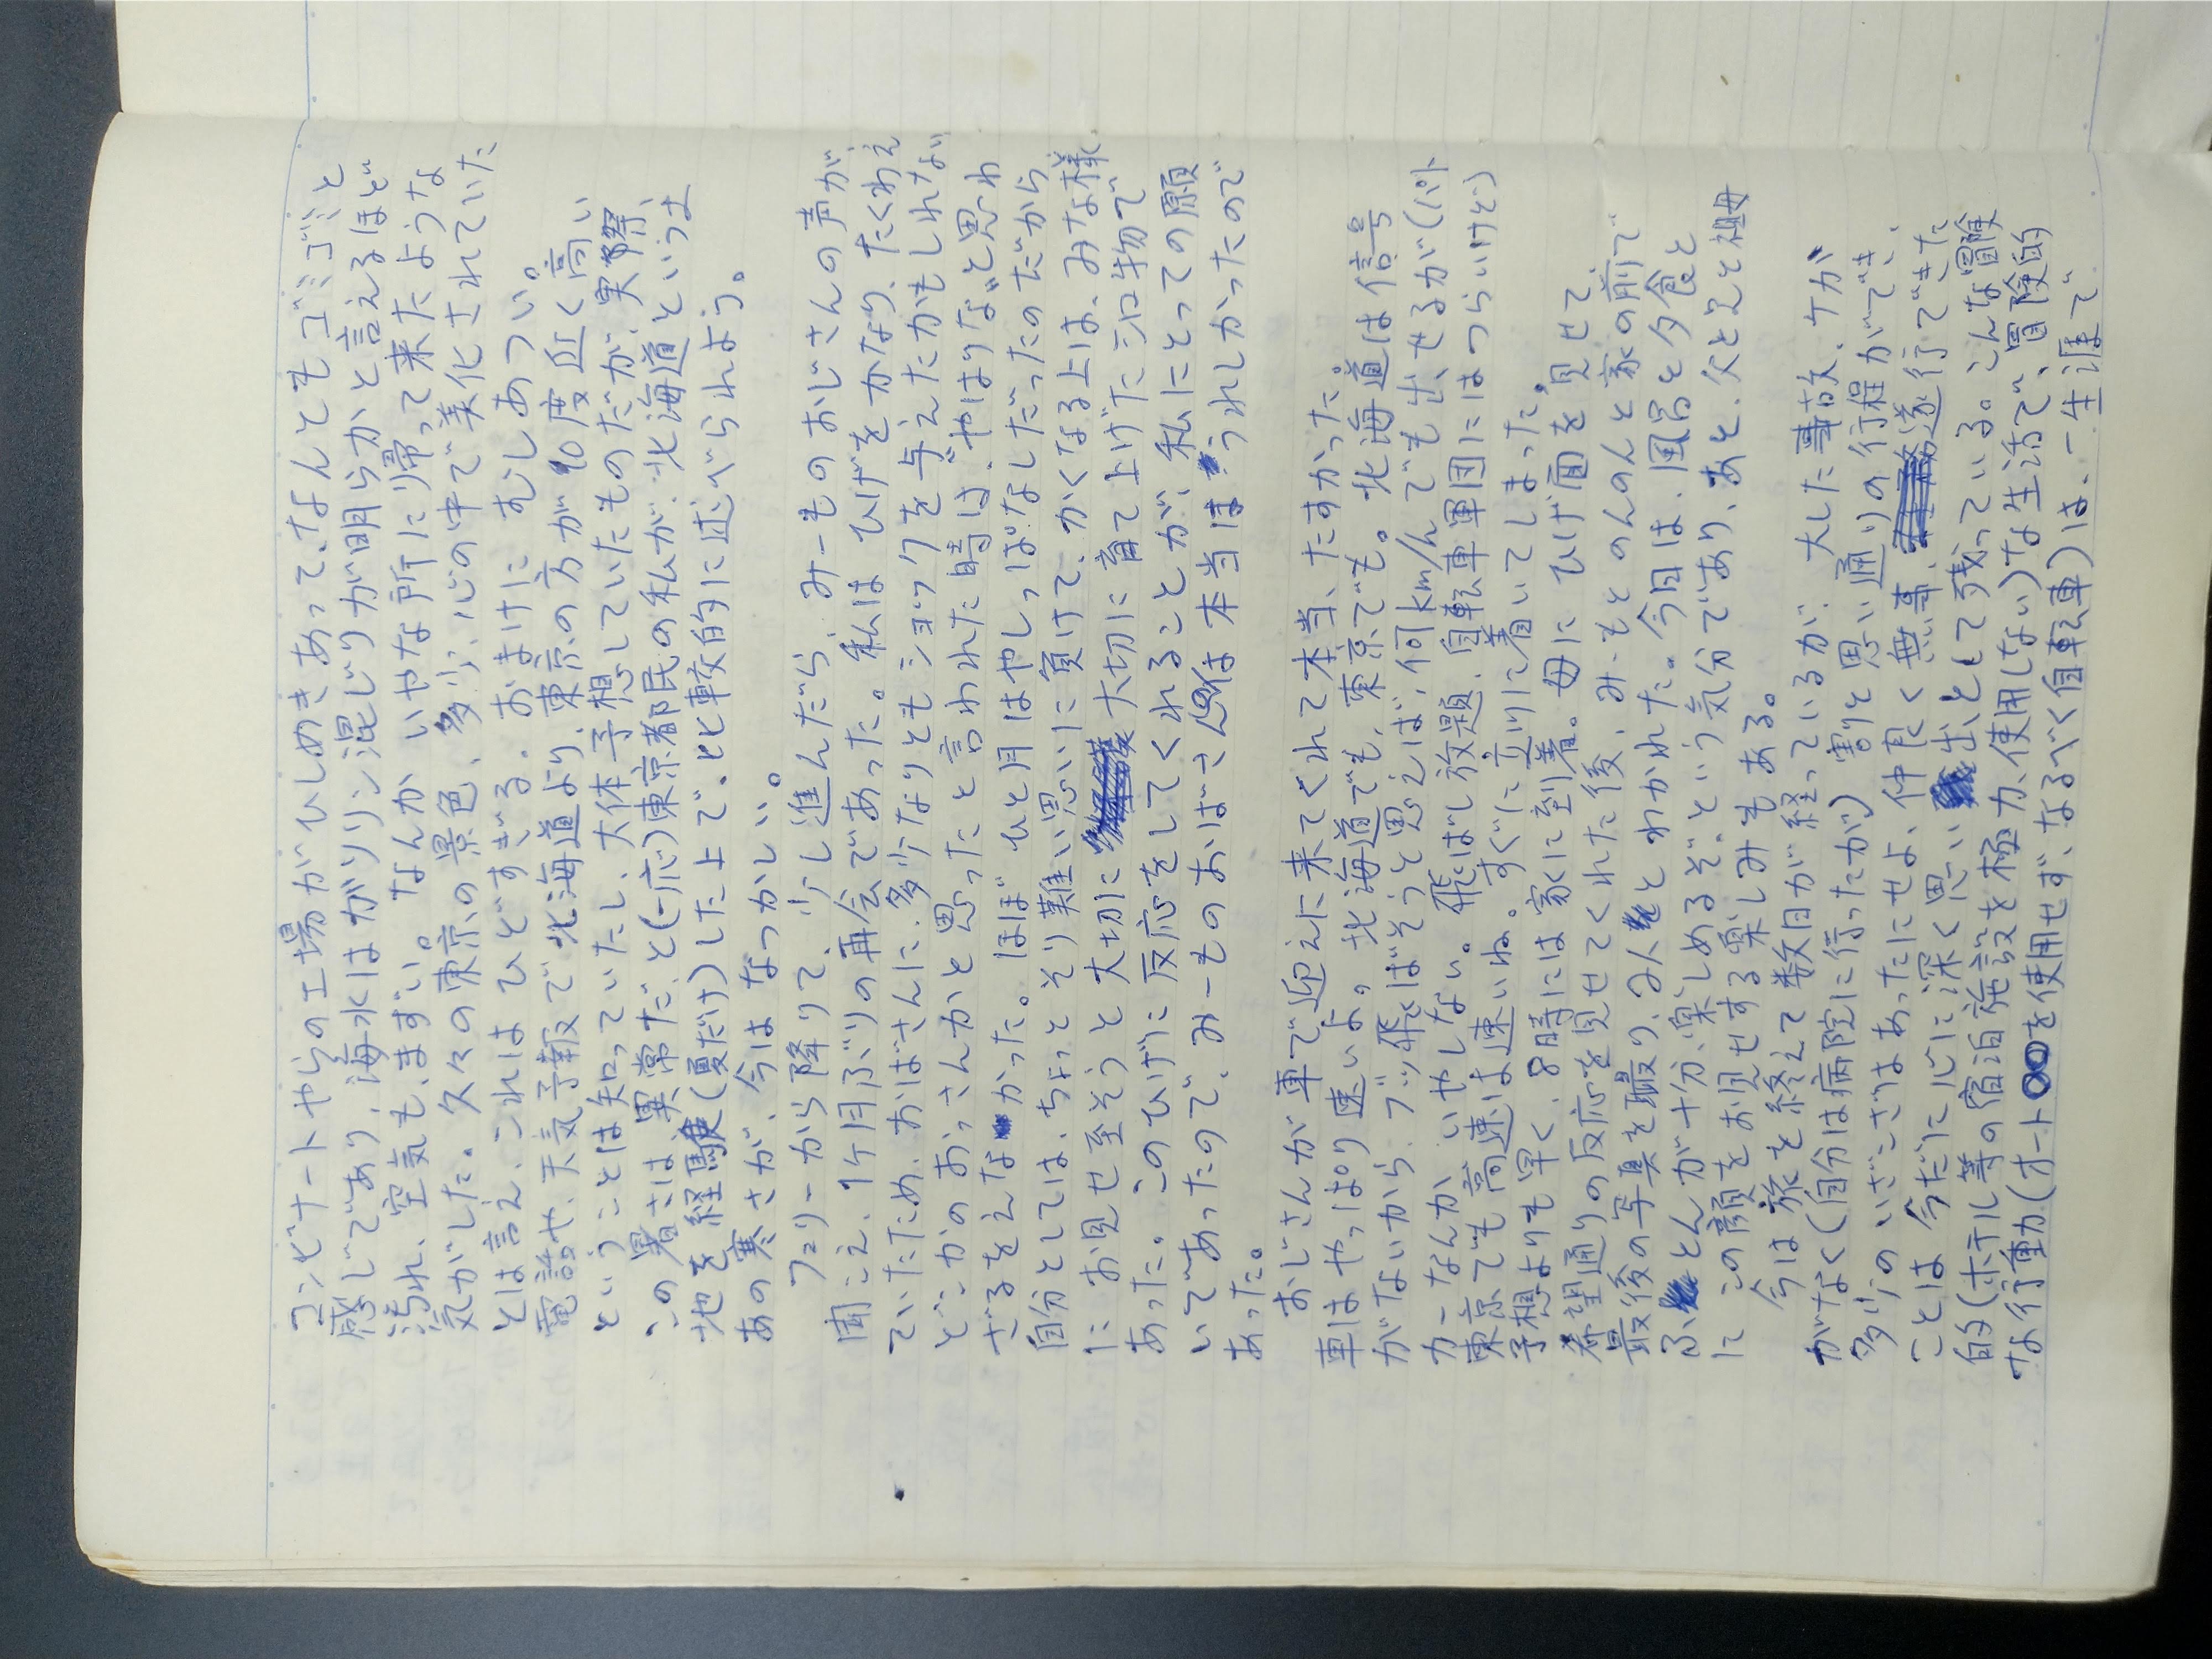 コンビナートやらの工場がひしめきあって、なんともゴミゴミと
感じであり、海水はガソリン混じりが明らかと言えるほど
汚れ、空気も、まずい。なんかいやな所に帰って来たような
気がした。久々の東京の景色、多少、心の中で美化されていた
とは言え、これはひどすぎる。おまけに むしあつい。
電話や、天気予報で北海道より、東京の方が10度近く高い
ということは知っていたし、大体予想していたものだが、実際、
この暑さは、異常だ、と(一応)東京都民の私が、北海道という土
地を経験(夏だけ)した上で、比較的に述べられよう。
あの寒さが、今はなつかしい。
フェリーから降りて、少し進んだら みーものおじさんの声が
聞こえ、1ヶ月ぶりの再会であった。私は ひげをかなり、たくわえ
ていたため、おばさんに、多少なりともショックを与えたかもしれない
どこかのおっさんかと思ったと言われた時は、"やはりな"と思わ
ざるをえなかった。ほぼ ひと月はやしっぱなしだったのだから
自分としては、ちょっとそり難い思いに負けて、かくなる上は、みな様
に お見せ至そうと大切に 大切に育て上げたシロ物で
あった。このひげに反応をしてくれることが、私にとっての願
いであったので、みーものおばさんには本当は うれしかったので
あった。
おじさんが車で迎えに来てくれて本当、たすかった。
車はやっぱり速いよ。北海道でも、東京でも。北海道は信号
がないから、ブッ飛ばそうと思えば、何km/hでも出せるが(パト
カーなんか、いやしない。飛ばし放題、自転車軍団にはつらいけど)
東京でも高速は速いね。すぐに立川に着いてしまった。
予想よりも早く、8時には家に到着。母に ひげ面を見せて、
希望通りの反応を見せてくれた後、み・もとのんのんと家の前で
最後の写真を撮り、2人とわかれた。今日は、風呂と夕食と
ふとんが十分、楽しめるぞ、という気分であり、あと、父と兄と祖母
に この顔をお見せする楽しみもある。
今は 旅を終えて 数日が経っているが、大した事故、ケガ
がなく(自分は病院に行ったが) 割と思い通りの行程ができ、
多少のいざこざはあったにせよ、仲良く無事、遂行できた
ことは 今だに心に深く思い出として残っている。こんな冒険
的(ホテル等の宿泊施設を極力、使用しない)な生活で、冒険的
な行動(オートを使用せず、なるべく自転車)は、一生涯で